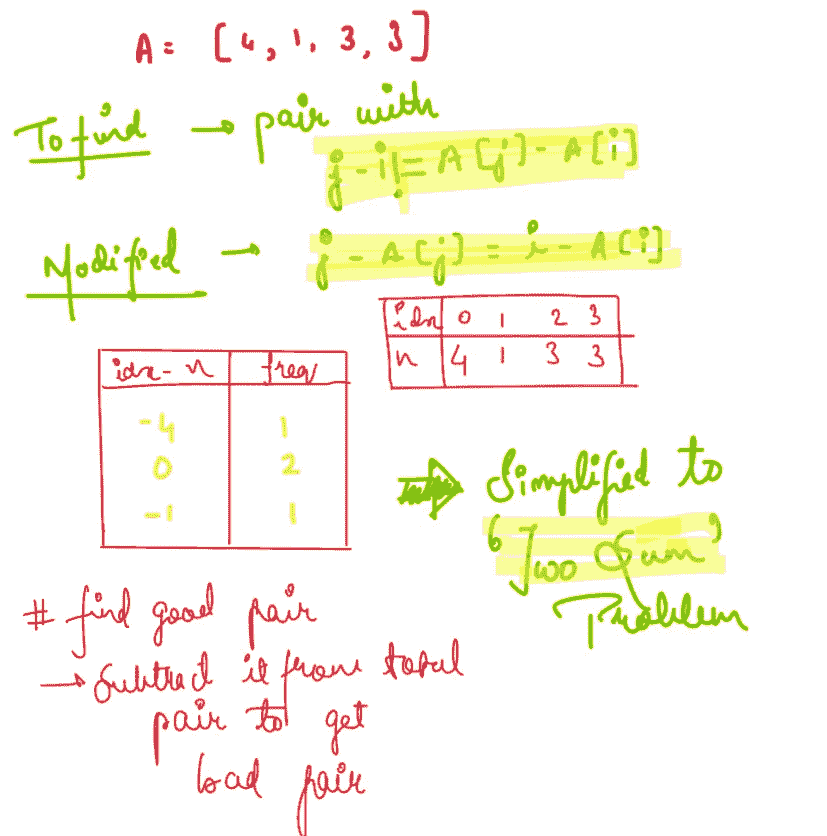 A = [4, 1, 3, 3]
To find → pair with
j - i != A[j] - A[i]
Modified → j - A[j] = i - A[i]
idx 0 1 2 3
n 4 1 3 3
idx - n freq
-4 1
0 2
-1 1
⇒ Simplified to
'Two Sum'
Problem
# find good pair
→ Subtract it from total
pair to get
bad pair